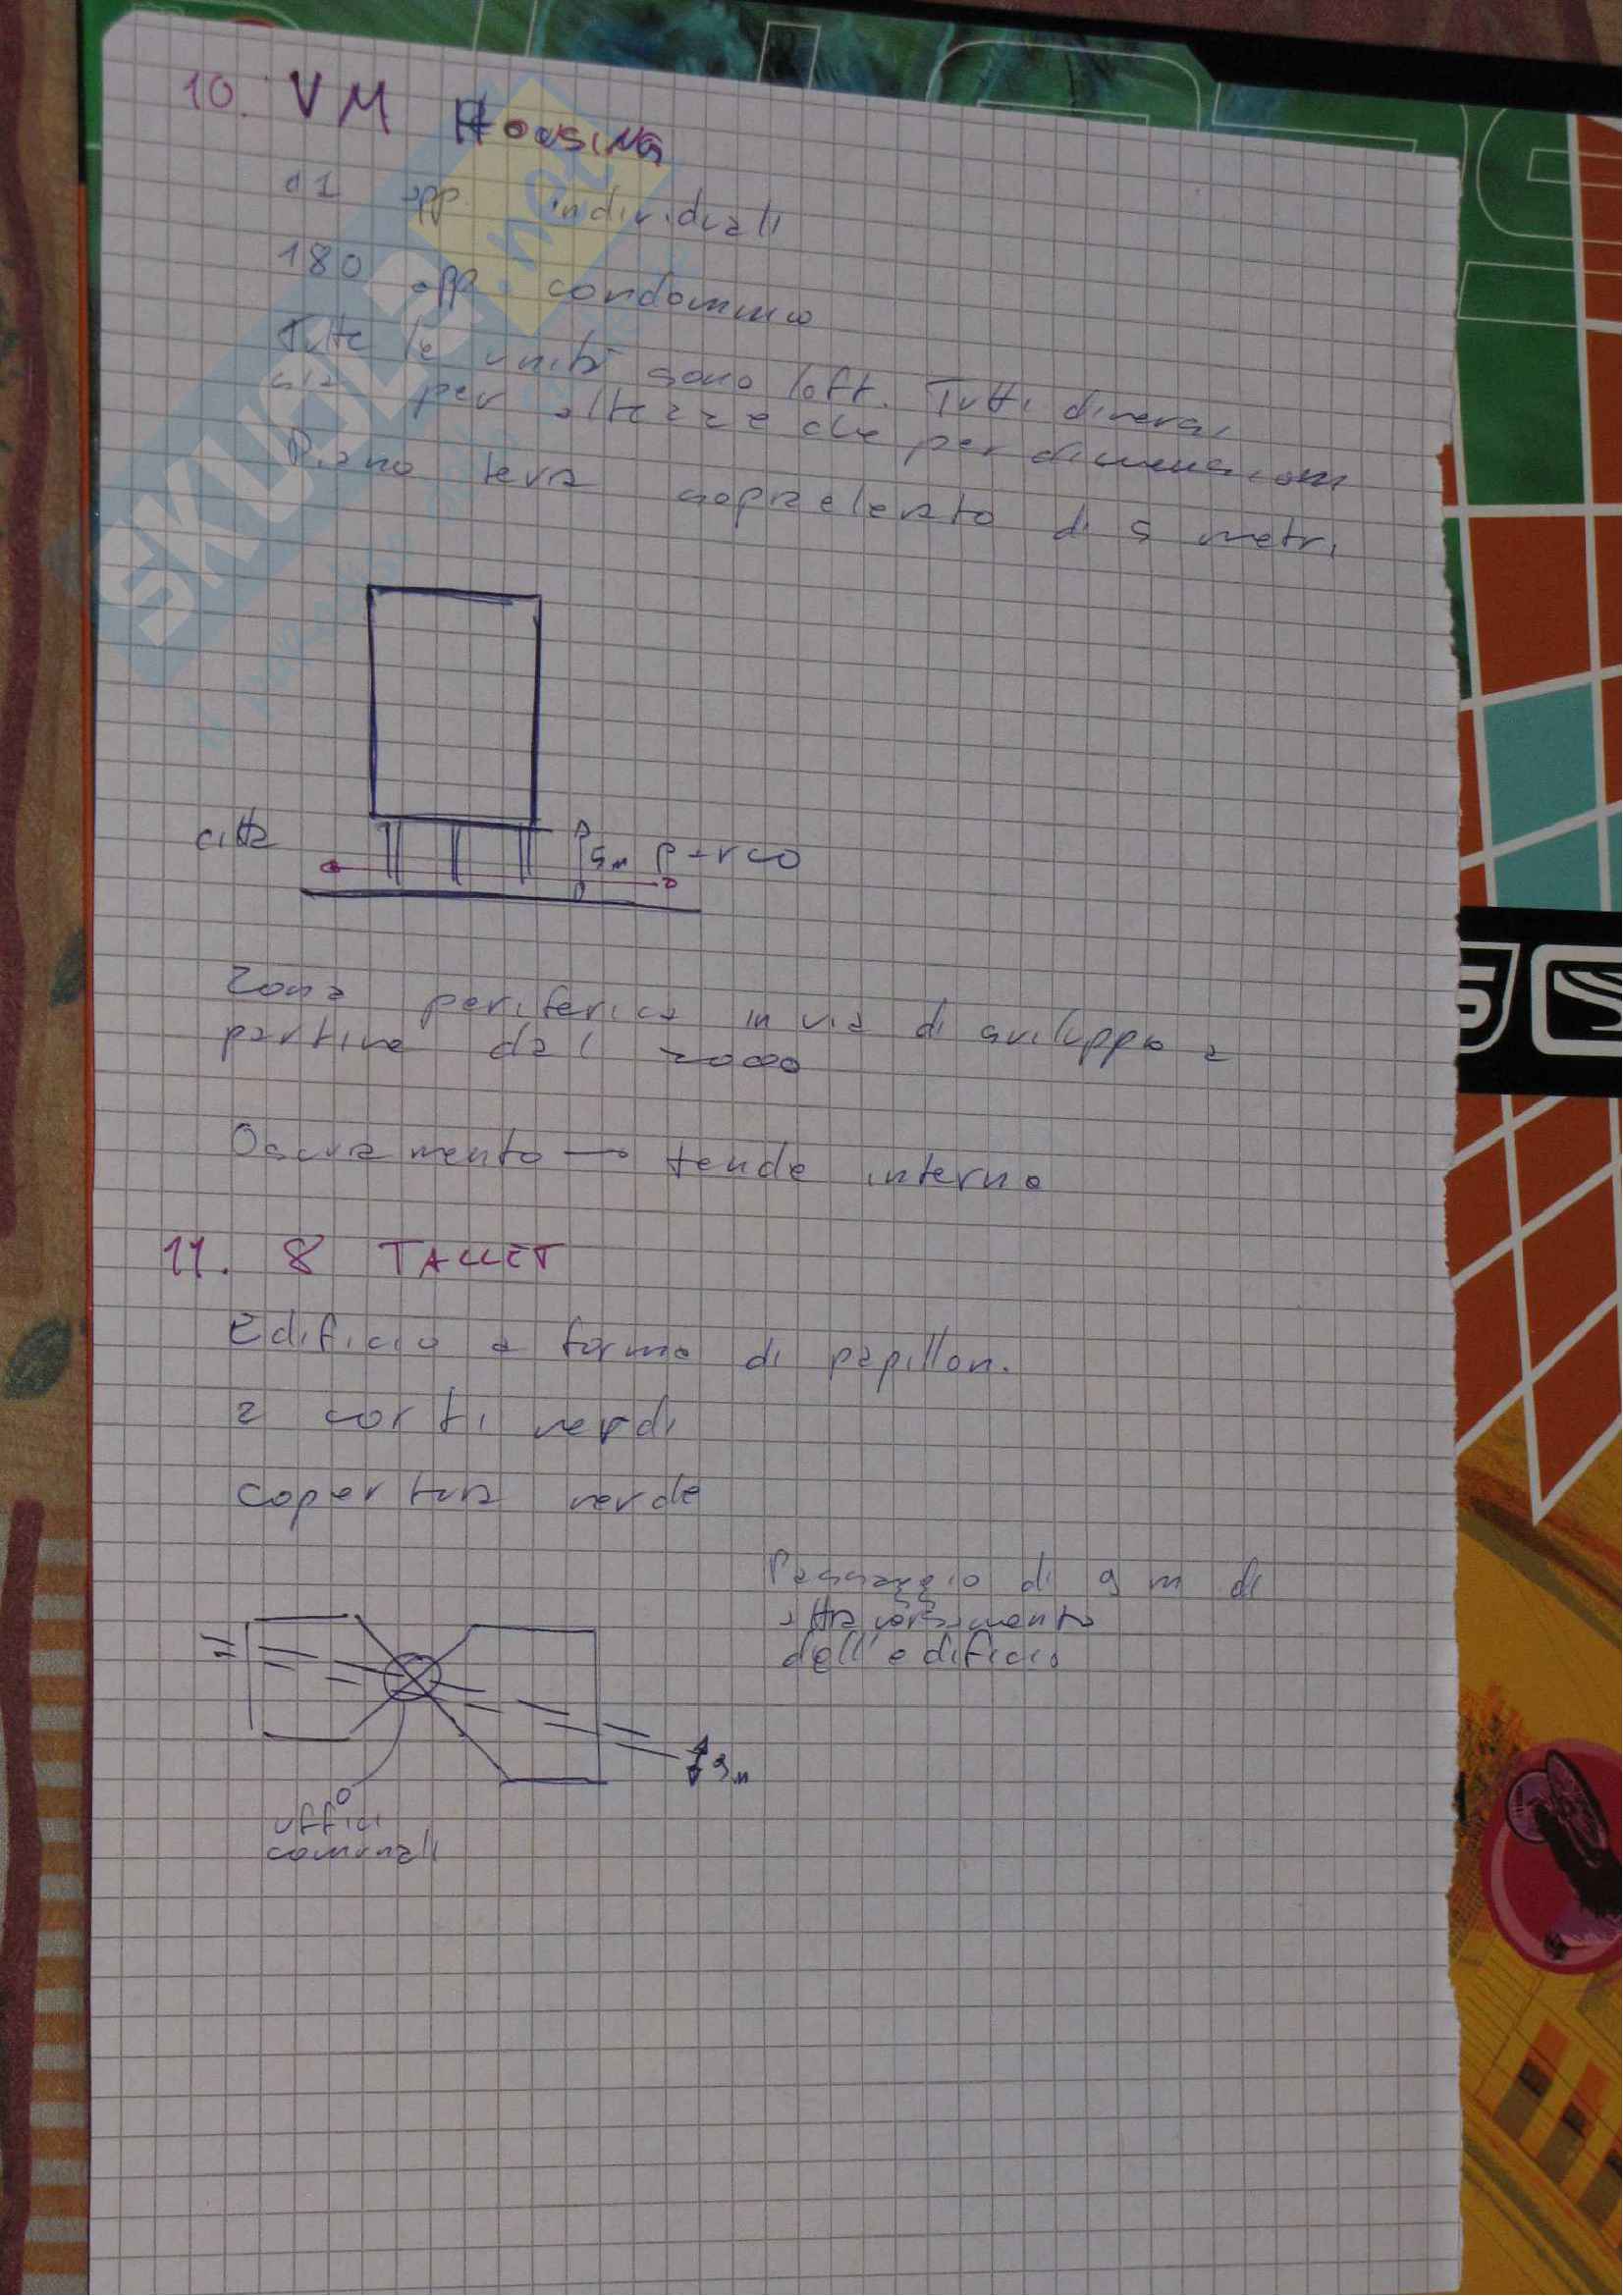 10. VM HOUSING
app. individuali
180 app. condominio
Tutte le unità sono loft. Tutti diversi
sia per altezze che per dimensioni
Piano terra sopraelevato di 5 metri
SKUOLA.net
città
5m parco
Zona periferica in via di sviluppo a
partire dal 2000
Oscuramento → tende interne
11. 8 TALLET
Edificio a forma di papillon.
2 corti verdi
copertura verde
Passaggio di 9 m di
attraversamento
dell'edificio
9m
uffici
comunali